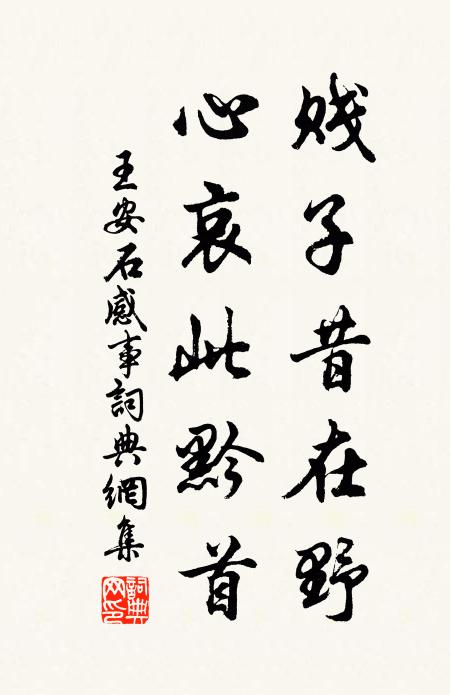 賤子昔在野
心哀此黔首
王安石感事詞典網集
詞典網印